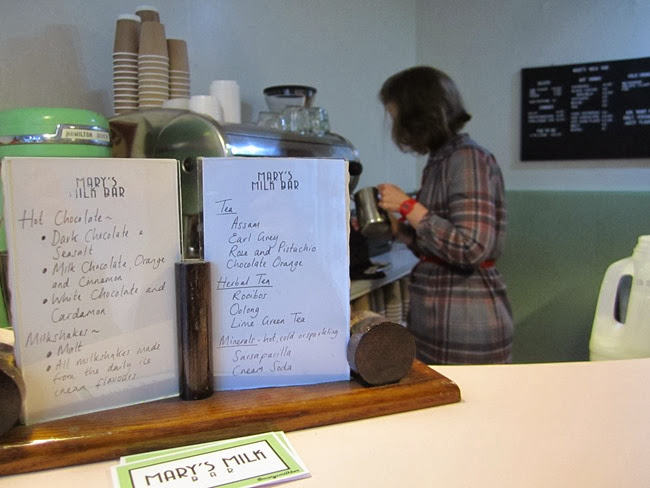 HAMILTON BEACH
MARY'S
MILK BAR
Hot Chocolate~
• Dark Chocolate &
Seasalt
• Milk Chocolate, Orange
and Cinnamon
• White Chocolate and
Cardamon
Milkshakes ~
• Malt
• All milkshakes made
from the daily ice
cream flavours.
MARY'S
MILK BAR
Tea
Assam
Earl Grey
Rose and Pistachio
Chocolate Orange
Herbal Tea
Rooibos
Oolong
Lime Green Tea
Minerals - hot, cold or sparkling
Sarsaparilla
Cream Soda
MARY'S MILK BAR
MARY'S MILK
BAR